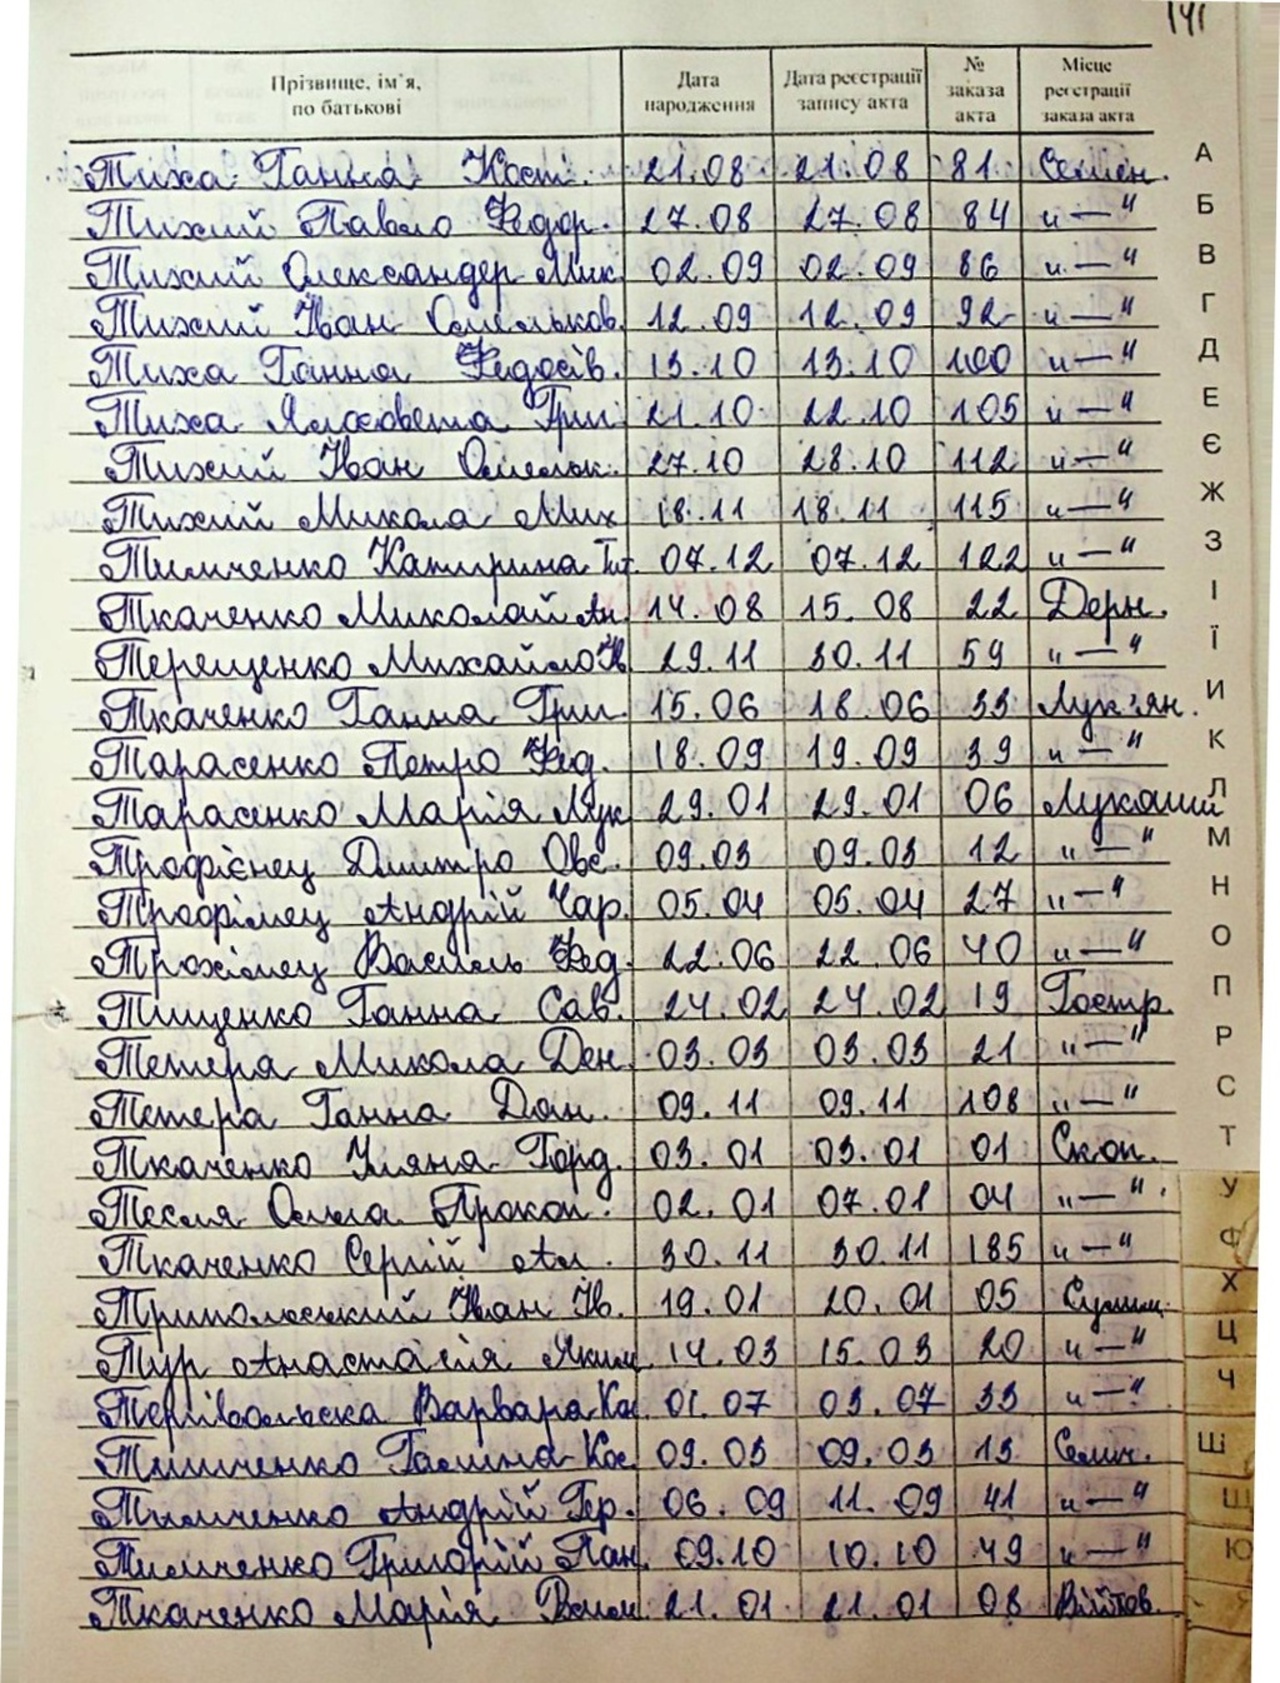 141
Прізвище, ім'я, по батькові Дата народження Дата реєстрації запису акта № заказа акта Місце реєстрації заказа акта
Тиха Ганна Кост. 21.08 21.08 81 Семен.
Тихий Павло Федор. 27.08 27.08 84 "—"
Тихий Олександер Мик. 02.09 02.09 86 "—"
Тихий Іван Омельков. 12.09 12.09 92 "—"
Тиха Ганна Федосів. 13.10 13.10 100 "—"
Тиха Єлизовета Григ. 21.10 22.10 105 "—"
Тихий Іван Омельк. 27.10 28.10 112 "—"
Тихий Микола Мих 18.11 18.11 115 "—"
Тимченко Катирина Тит. 07.12 07.12 122 "—"
Ткаченко Миколай Ан. 14.08 15.08 22 Дерн.
Терещенко Михайло Ів 29.11 30.11 59 "—"
Ткаченко Ганна Григ. 15.06 18.06 33 Лук'ян.
Тарасенко Петро Фед. 18.09 19.09 39 "—"
Тарасенко Марія Лук 29.01 29.01 06 Лукаши
Трофієнец Дмитро Овс. 09.03 09.03 12 "—"
Трофімец Андрій Чар. 05.04 05.04 27 "—"
Трохімец Василь Фед. 22.06 22.06 40 "—"
Тищенко Ганна Сав. 24.02 24.02 19 Гостр.
Тетера Микола Ден. 03.03 03.03 21 "—"
Тетера Ганна Дан. 09.11 09.11 108 "—"
Ткаченко Уляна Горд. 03.01 03.01 01 Скоп.
Тесля Ольга Прокоп. 02.01 07.01 04 "—"
Ткаченко Сергій Ал. 30.11 30.11 185 "—"
Трипольський Іван Ів. 19.01 20.01 05
Тур Анастасія Яким 14.03 15.03 20 "—"
Варвара 01.07 03.07 33 "—"
Тимченко Галина Кос. 09.03 09.03 13 Семич.
Тимченко Андрій Гр. 06.09 11.09 41 "—"
Тимченко Григорій Пан. 09.10 10.10 49 "—"
Ткаченко Марія Васил. 21.01 21.01 08 Війтов.
А
Б
В
Г
Д
Е
Є
Ж
З
І
Ї
И
К
Л
М
Н
О
П
Р
С
Т
У
Ф
Х
Ц
Ч
Ш
Щ
Ю
Я